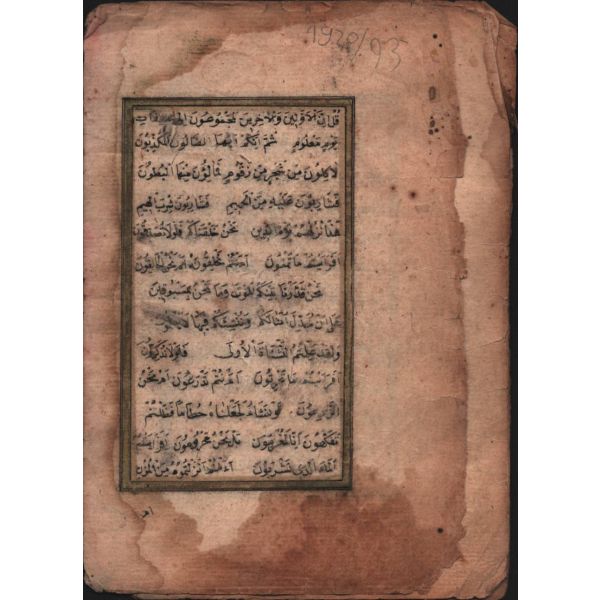 1920/93
قُل اِنَّ الاَوّلينَ وَالاخِرينَ لَمَجمُوعُونَ اِلى ميقَات
يَومٍ مَعلُومٍ ثُمَّ اِنَّكُم اَيُّهَا الضَّالّونَ المُكَذِّبُونَ
لَاٰكِلُونَ مِن شَجَرٍ مِن زَقُّومٍ فَمَالِؤُنَ مِنهَا البُطُونَ
فَشَارِبُونَ عَلَيهِ مِنَ الحَميمِ فَشَارِبُونَ شُربَ الهيمِ
هٰذَا نُزُلُهُم يَومَ الدّينِ نَحنُ خَلَقنَاكُم فَلَولَا تُصَدِّقُونَ
اَفَرَاَيتُم مَا تُمنُونَ ءَاَنتُم تَخلُقُونَهُ اَم نَحنُ الخَالِقُونَ
نَحنُ قَدَّرنَا بَينَكُمُ المَوتَ وَمَا نَحنُ بِمَسبُوقينَ
عَلى اَن نُبَدِّلَ اَمثَالَكُم وَنُنشِئَكُم فيمَا لَا تَعلَمُونَ
وَلَقَد عَلِمتُمُ النَّشاَةَ الاُولى فَلَولَا تَذَكَّرُونَ
اَفَرَاَيتُم مَا تَحرُثُونَ ءَاَنتُم تَزرَعُونَهُ اَم نَحنُ
الزَّارِعُونَ لَونَشَاءُ لَجَعَلنَاهُ حُطَاماً فَظَلتُم
تَفَكَّهُونَ اِنَّا لَمُغرَمُونَ بَل نَحنُ مَحرُومُونَ اَفَرَاَيتُمُ
المَاءَ الَّذي تَشرَبُونَ ءَاَنتُم اَنزَلتُمُوهُ مِنَ المُزنِ